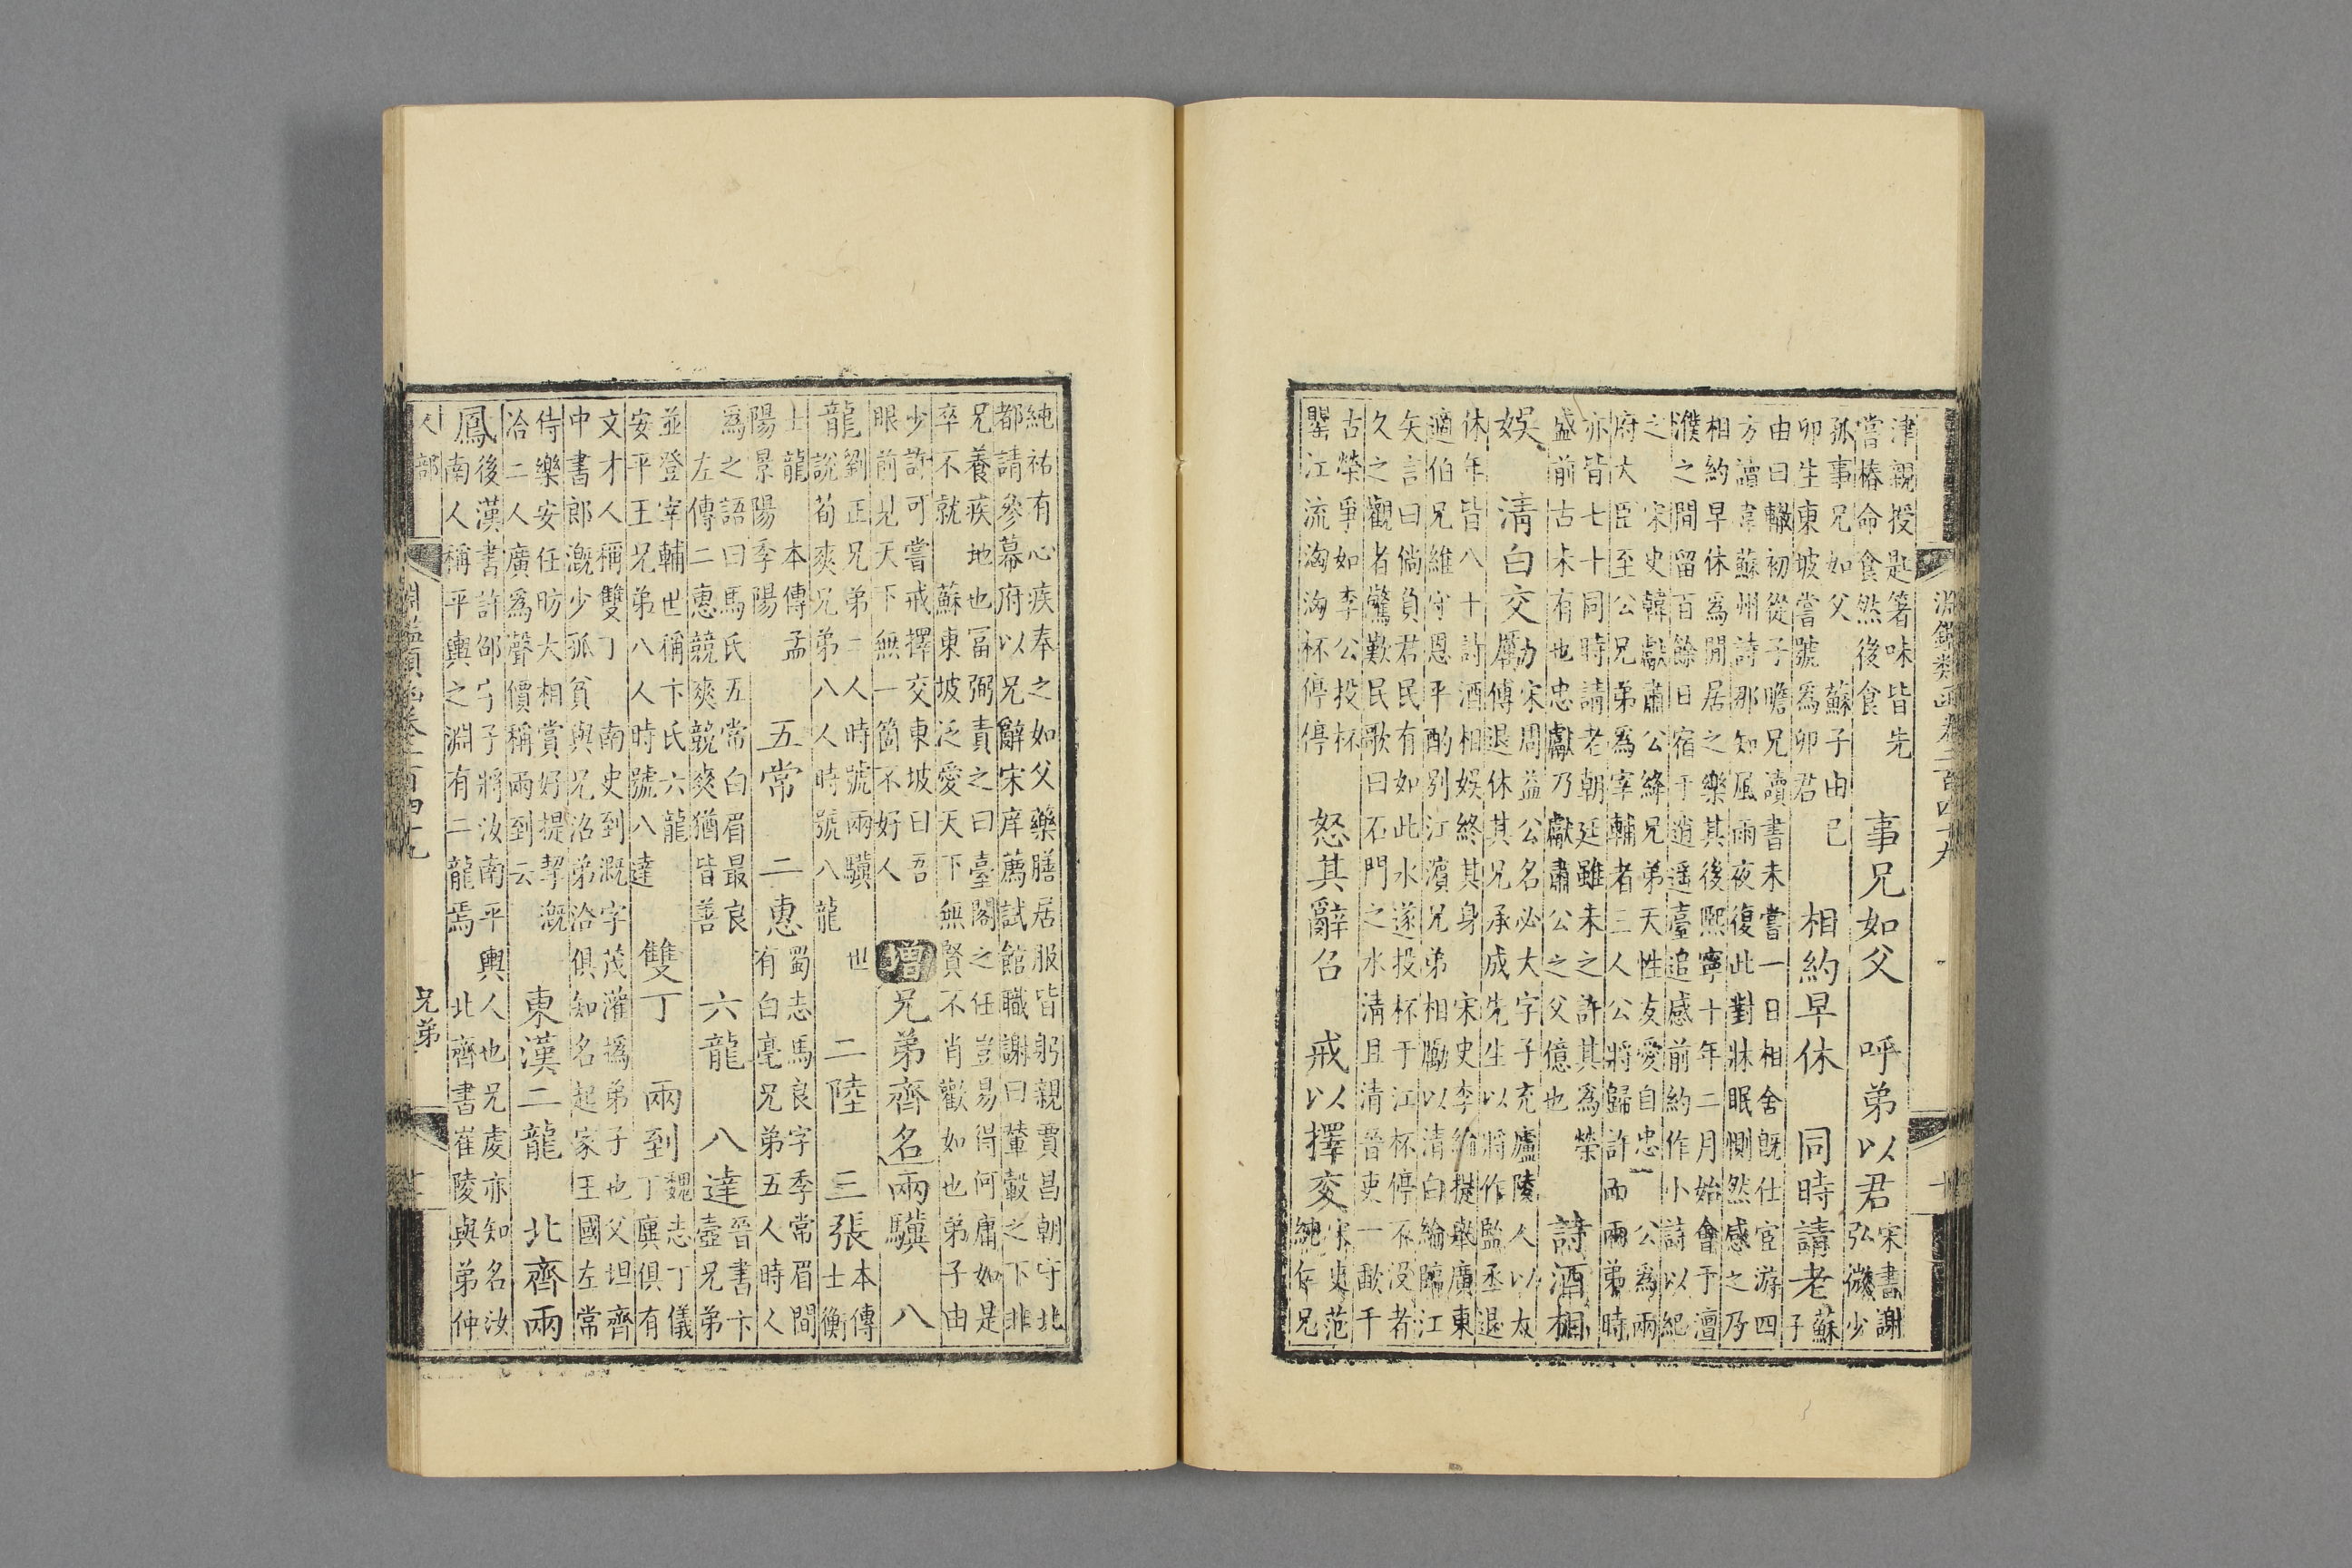 淵鑑類函卷二百四十九 十
津親授匙箸味皆先
嘗椿命食然後食
事兄如父 呼弟以君
宋書謝
弘微少
孤事兄如父 蘇子由已
卯生東坡嘗號為卯君
相約早休 同時請老
蘇
子
由曰轍初從子瞻兄讀書未嘗一日相舍既仕宦游四
方讀韋蘇州詩那知風雨夜復此對牀眠惻然感之乃
相約早休為閒居之樂其後熙寧十年二月始會于澶
濮之間留百餘日宿于逍遙臺追感前約作小詩以紀
之 宋史韓獻肅公絳兄弟天性友愛自忠 公為兩
府大臣至公兄弟為宰輔者三人公將歸許而兩弟時
亦皆七十同時請老朝廷雖未之許其為榮
盛前古未有也忠獻乃獻肅公之父億也
詩酒相
娛 清白交勵
宋周益公名必大字子充廬陵人以
傅退休其兄承成先生以將作監丞退
休年皆八十詩酒相娛終其身 宋史李綸提舉廣東
適伯兄維守恩平酌別江濱兄弟相勵以清白綸臨江
矢言曰倘負君民有如此水遂投杯于江杯停不沒者
久之觀者驚歎民歌曰石門之水清且清晉吏一歃千
古榮爭如李公投杯
罌江流洶洶杯停停
怒其辭召 戒以擇交
宋史范
純仁兄
純祐有心疾奉之如父藥膳居服皆躬親賈昌朝守北
都請參幕府以兄辭宋庠薦試館職謝曰輦轂之下非
兄養疾地也富弼責之曰臺閣之任豈易得何庸如是
卒不就 蘇東坡泛愛天下無賢不肖歡如也弟子由
少許可嘗戒擇交東坡曰吾
眼前見天下無一箇不好人
增 兄弟齊名 兩驥 八
龍
劉正兄弟二人時號兩驥 世
說荀爽兄弟八人時號八龍
二陸 三張
本傳
士衡
士龍 本傳孟
陽景陽季陽
五常 二惠
蜀志馬良字季常眉間
有白毫兄弟五人時人
為之語曰馬氏五常白眉最良
左傳二惠競爽競爽猶皆善
六龍 八達
晉書卞
壼兄弟
並登宰輔世稱卞氏六龍
安平王兄弟八人時號八達
雙丁 兩到
魏志丁儀
丁廙俱有
文才人稱雙丁 南史到溉字茂灌撝弟子也父坦齊
中書郎溉少孤貧與兄沼弟洽俱知名起家王國左常
侍樂安任昉大相賞好提挈溉
洽二人廣為聲價稱兩到云
東漢二龍 北齊兩
鳳
後漢書許邵字子將汝南平輿人也兄虔亦知名汝
南人稱平輿之淵有二龍焉 北齊書崔陵與弟仲
人部 淵鑑類函卷二百四十九 兄弟 十一